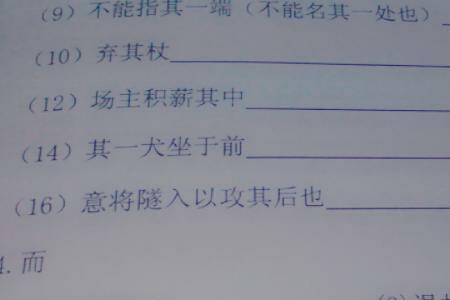 (9) 不能指其一端（不能名其一处也）
(10) 弃其杖
(12) 场主积薪其中
(14) 其一犬坐于前
(16) 意将隧入以攻其后也
4. 而